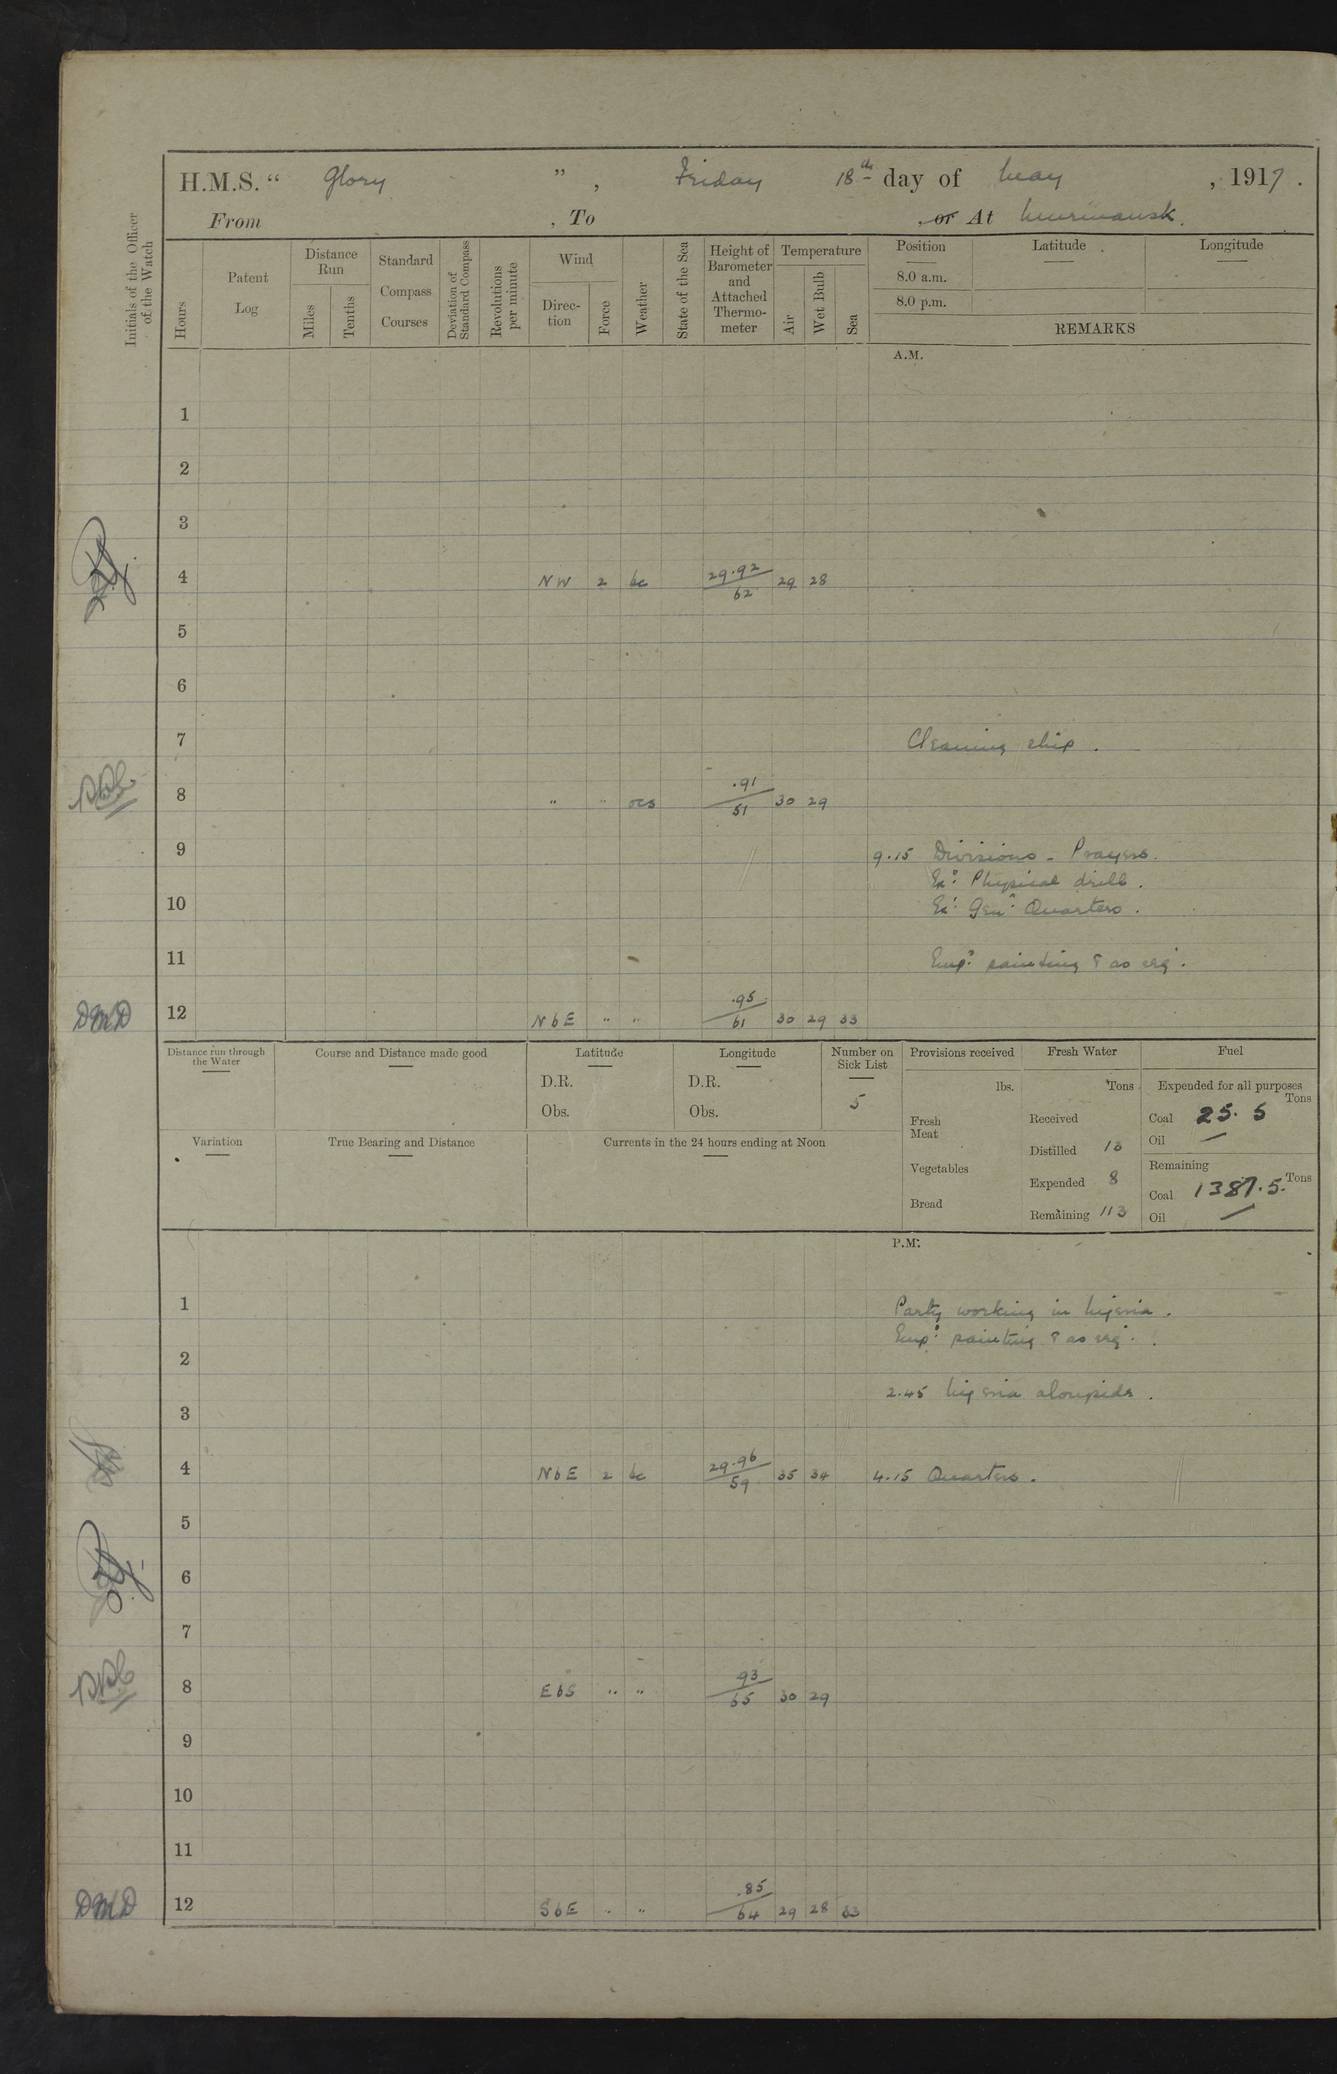 H.M.S. “ Glory ” , Friday 18th day of May , 1917 .
From , To , or At Murmansk.
Initials of the Officer of the Watch
Hours
Patent Log
Distance Run
Miles
Tenths
Standard Compass Courses
Deviation of Standard Compass
Revolutions per minute
Wind
Direc- tion
Force
Weather
State of the Sea
Height of Barometer and Attached Thermo- meter
Temperature
Air
Wet Bulb
Sea
Position Latitude Longitude
8.0 a.m.
8.0 p.m.
REMARKS
A.M.
1
2
3
4 NW 2 bc 29.92/62 29 28
5
6
7 Cleaning ship .
8 " " ocs .91/51 30 29
9 9.15 Divisions - Prayers.
Exd. Physical drill .
10 Exd. Genl. Quarters .
11 Empd. painting & as req.
DMD 12 NbE " " .95/61 30 29 33
Distance run through the Water
Course and Distance made good
Latitude
D.R.
Obs.
Longitude
D.R.
Obs.
Number on Sick List
5
Provisions received
lbs.
Fresh Meat
Vegetables
Bread
Fresh Water
Tons
Received
Distilled 13
Expended 8
Remaining 113
Fuel
Expended for all purposes
Tons
Coal 25.5
Oil —
Remaining
Tons
Coal 1387.5
Oil —
Variation
True Bearing and Distance
Currents in the 24 hours ending at Noon
P.M.
1 Party working in Nigeria .
Empd. painting & as req.
2
2.45 Nigeria alongside .
3
4 NbE 2 bc 29.96/59 35 34 4.15 Quarters .
5
6
7
8 EbS " " 93/65 30 29
9
10
11
DMD 12 SbE " " .85/64 29 28 33